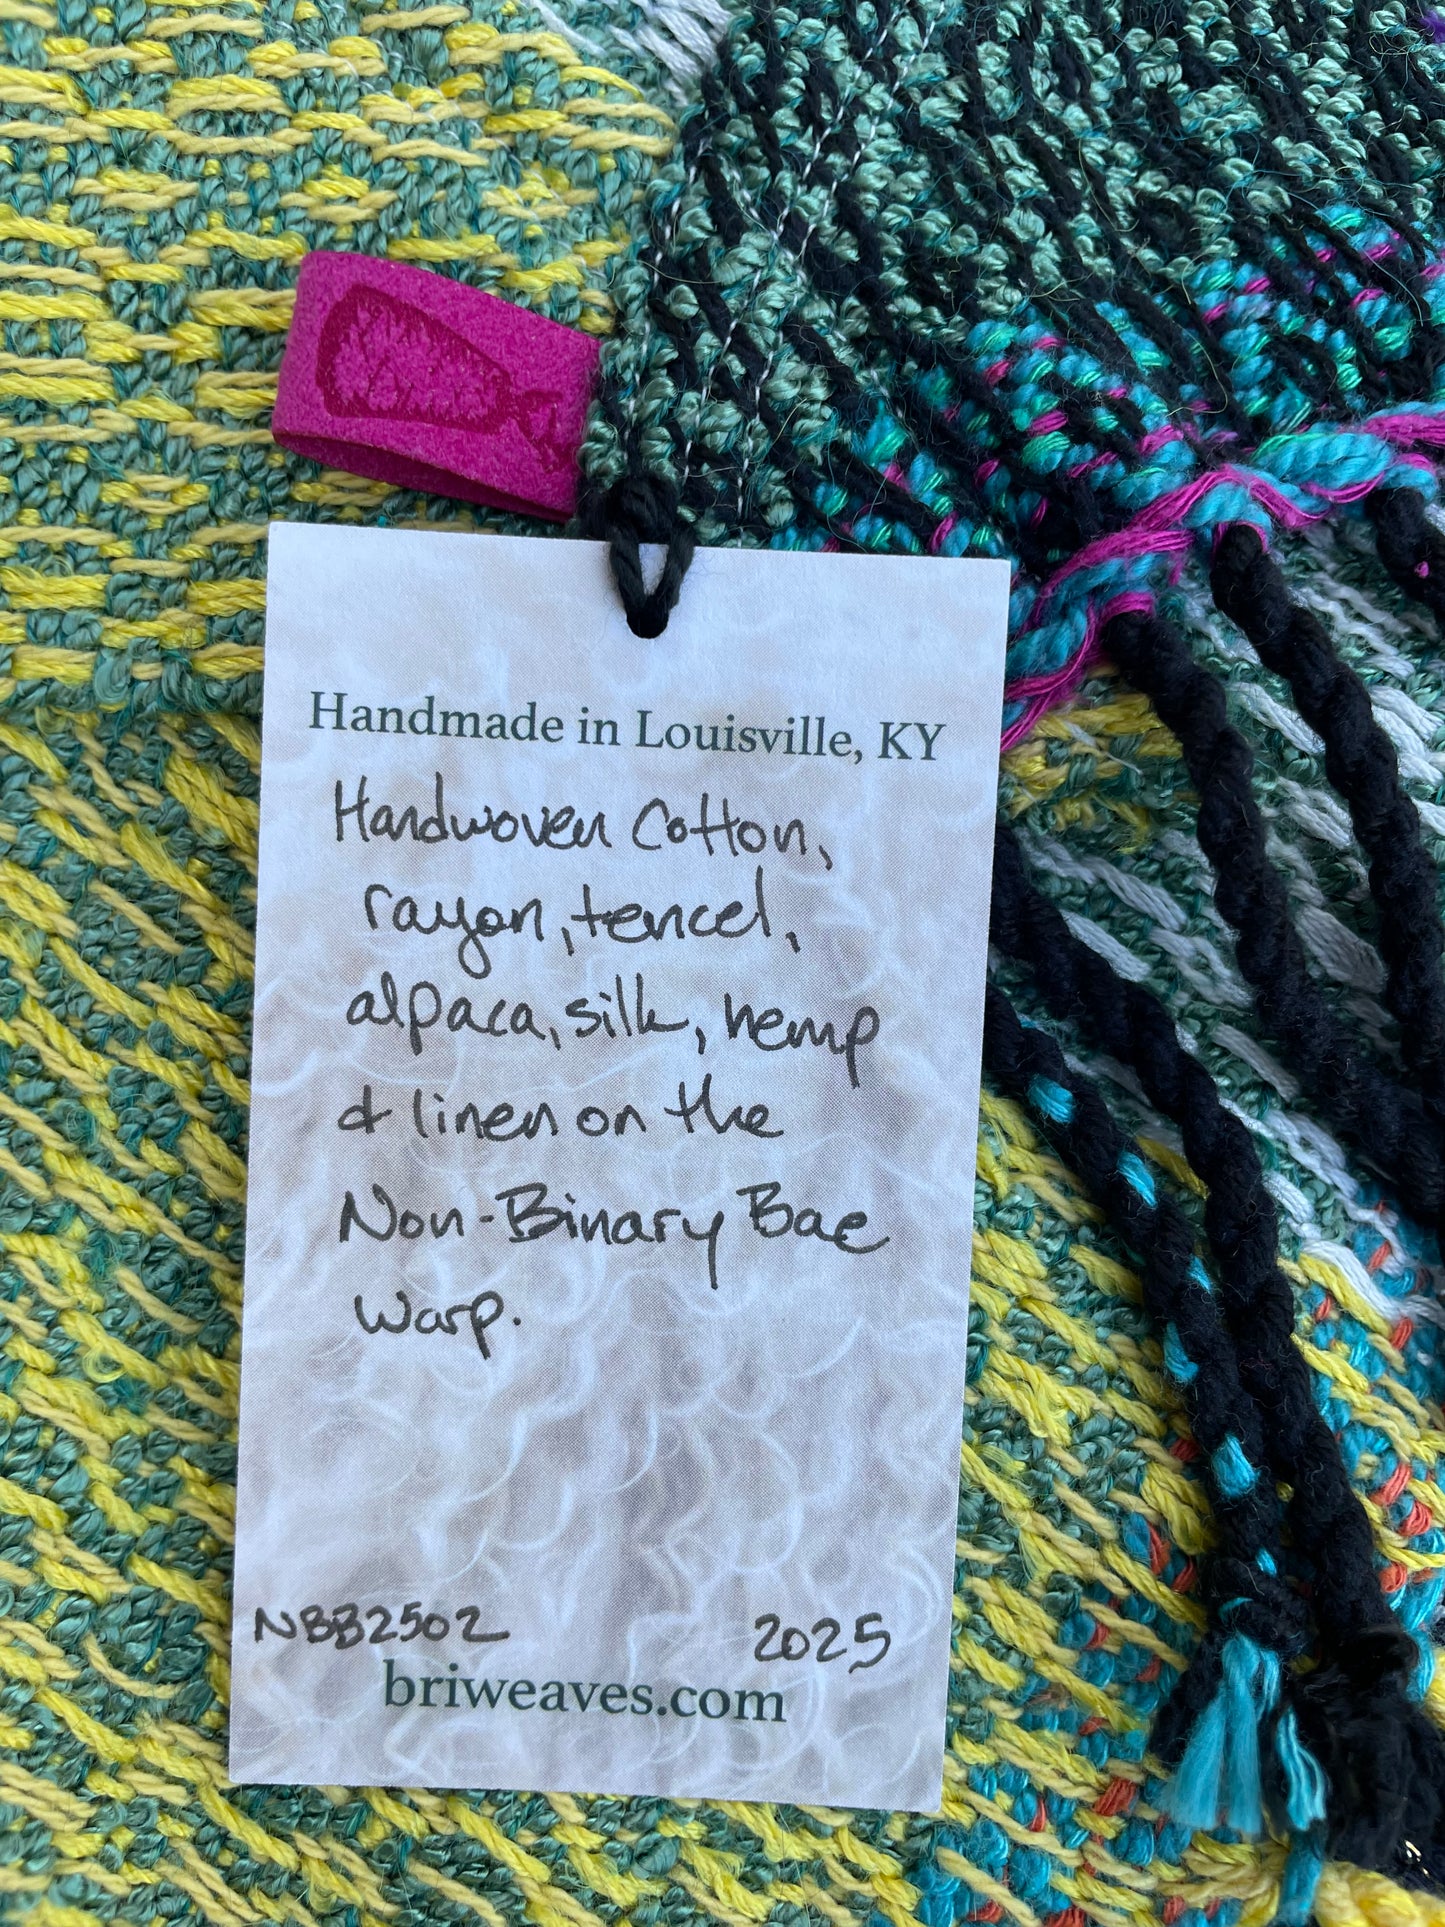 Handmade in Louisville, KY
Handwoven Cotton,
rayon, tencel,
alpaca, silk, hemp
& linen on the
Non-Binary Bae
warp.
NBB2502 2025
briweaves.com